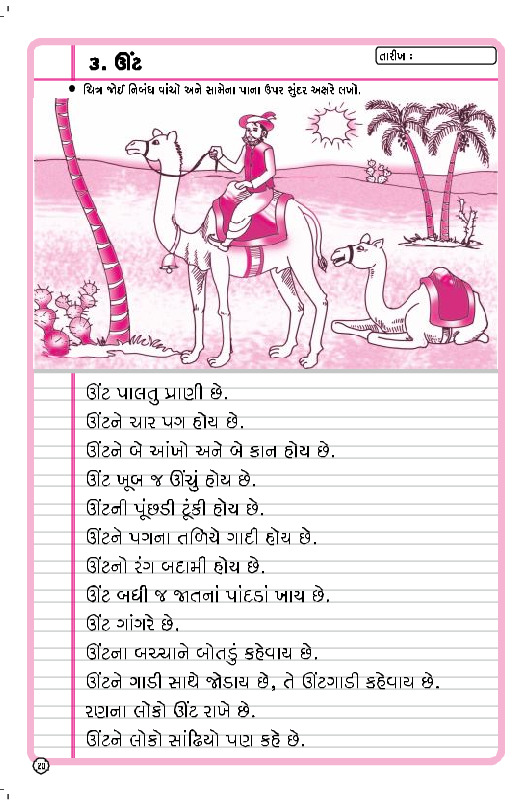 ૩. ઊંટ
તારીખ :
● ચિત્ર જોઈ નિબંધ વાંચો અને સામેના પાના ઉપર સુંદર અક્ષરે લખો.
ઊંટ પાલતુ પ્રાણી છે.
ઊંટને ચાર પગ હોય છે.
ઊંટને બે આંખો અને બે કાન હોય છે.
ઊંટ ખૂબ જ ઊંચું હોય છે.
ઊંટની પૂંછડી ટૂંકી હોય છે.
ઊંટને પગના તળિયે ગાદી હોય છે.
ઊંટનો રંગ બદામી હોય છે.
ઊંટ બધી જ જાતનાં પાંદડાં ખાય છે.
ઊંટ ગાંગરે છે.
ઊંટના બચ્ચાને બોતડું કહેવાય છે.
ઊંટને ગાડી સાથે જોડાય છે, તે ઊંટગાડી કહેવાય છે.
રણના લોકો ઊંટ રાખે છે.
ઊંટને લોકો સાંઢિયો પણ કહે છે.
20